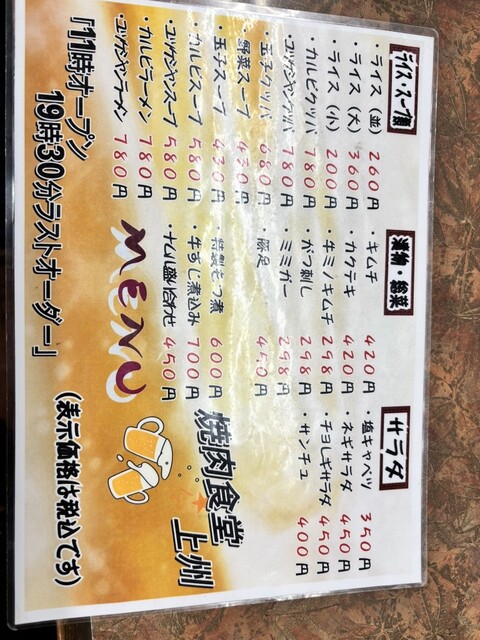 ライス・スープ類
・ライス（並） 260円
・ライス（大） 360円
・ライス（小） 200円
・カルビクッパ 780円
・ユッケジャンクッパ 780円
・玉子クッパ 680円
・野菜スープ 430円
・玉子スープ 430円
・カルビスープ 580円
・ユッケジャンスープ 580円
・カルビラーメン 780円
・ユッケジャンラーメン 780円
漬物・総菜
・キムチ 420円
・カクテキ 420円
・牛ミノキムチ 298円
・がつ刺し 298円
・ミミガー 298円
・豚足 450円
特製もつ煮 600円
・牛すじ煮込み 700円
・ナムル盛り合わせ 450円
サラダ
・塩キャベツ 350円
・ネギサラダ 450円
・チョレギサラダ 450円
・サンチュ 400円
MENU
焼肉食堂
上州
『11時オープン
19時30分ラストオーダー』
(表示価格は税込です)